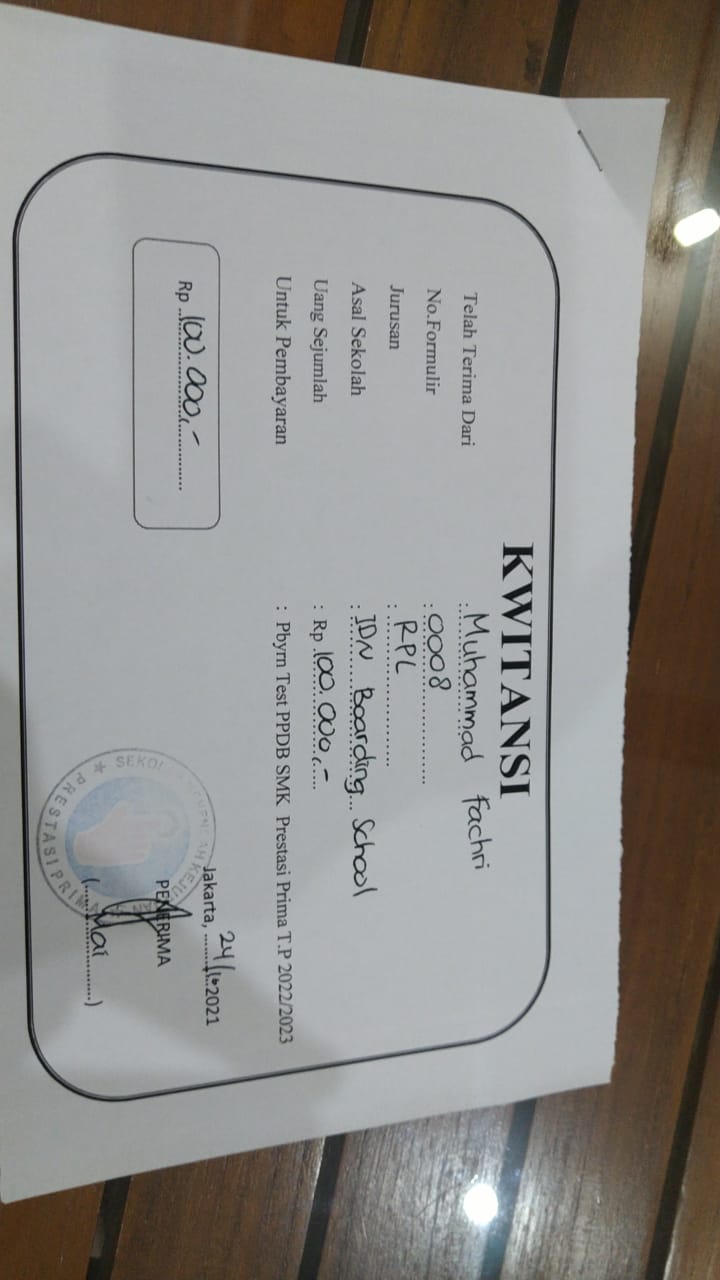 KWITANSI
Telah Terima Dari : Muhammad Fachri
No.Formulir : 0008
Jurusan : RPL
Asal Sekolah : IDN Boarding School
Uang Sejumlah : Rp 100.000,-
Untuk Pembayaran : Pbyrn Test PPDB SMK Prestasi Prima T.P 2022/2023
Rp 100.000,-
Jakarta, 24/10 2021
PENERIMA
(Mai)
SEKOLAH MENENGAH KEJURUAN
★ PRESTASI PRIMA